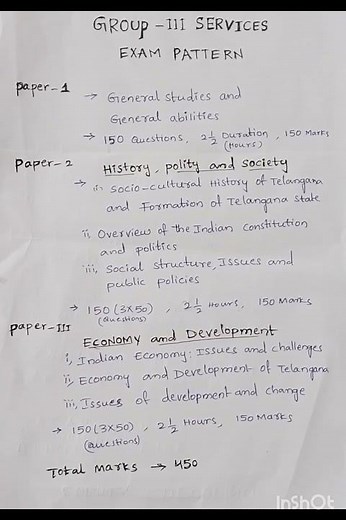 GROUP-III SERVICES
EXAM PATTERN
Paper-1
→ General studies and
General abilities
→ 150 Questions, 2 1/2 Duration (Hours), 150 Marks
Paper-2 History, polity and society
→ i, Socio-cultural History of Telangana
and Formation of Telangana state
ii, Overview of the Indian constitution
and politics
iii, Social structure, Issues and
public policies
→ 150 (3x50) (Questions), 2 1/2 Hours, 150 Marks
Paper-III
Economy and Development
i, Indian Economy: Issues and challenges
ii, Economy and Development of Telangana
iii, Issues of development and change
→ 150 (3x50) (Questions), 2 1/2 Hours, 150 Marks
Total Marks → 450
InShOt